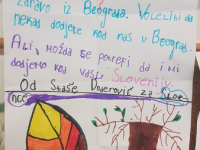 Zdravo iz Beograda. Voleli bi da
nekad dodjete kod nas u Beograd.
Ali, možda se potrefi da i mi
dodjemo kod vas u Sloveniju
Od Staše Duverović za